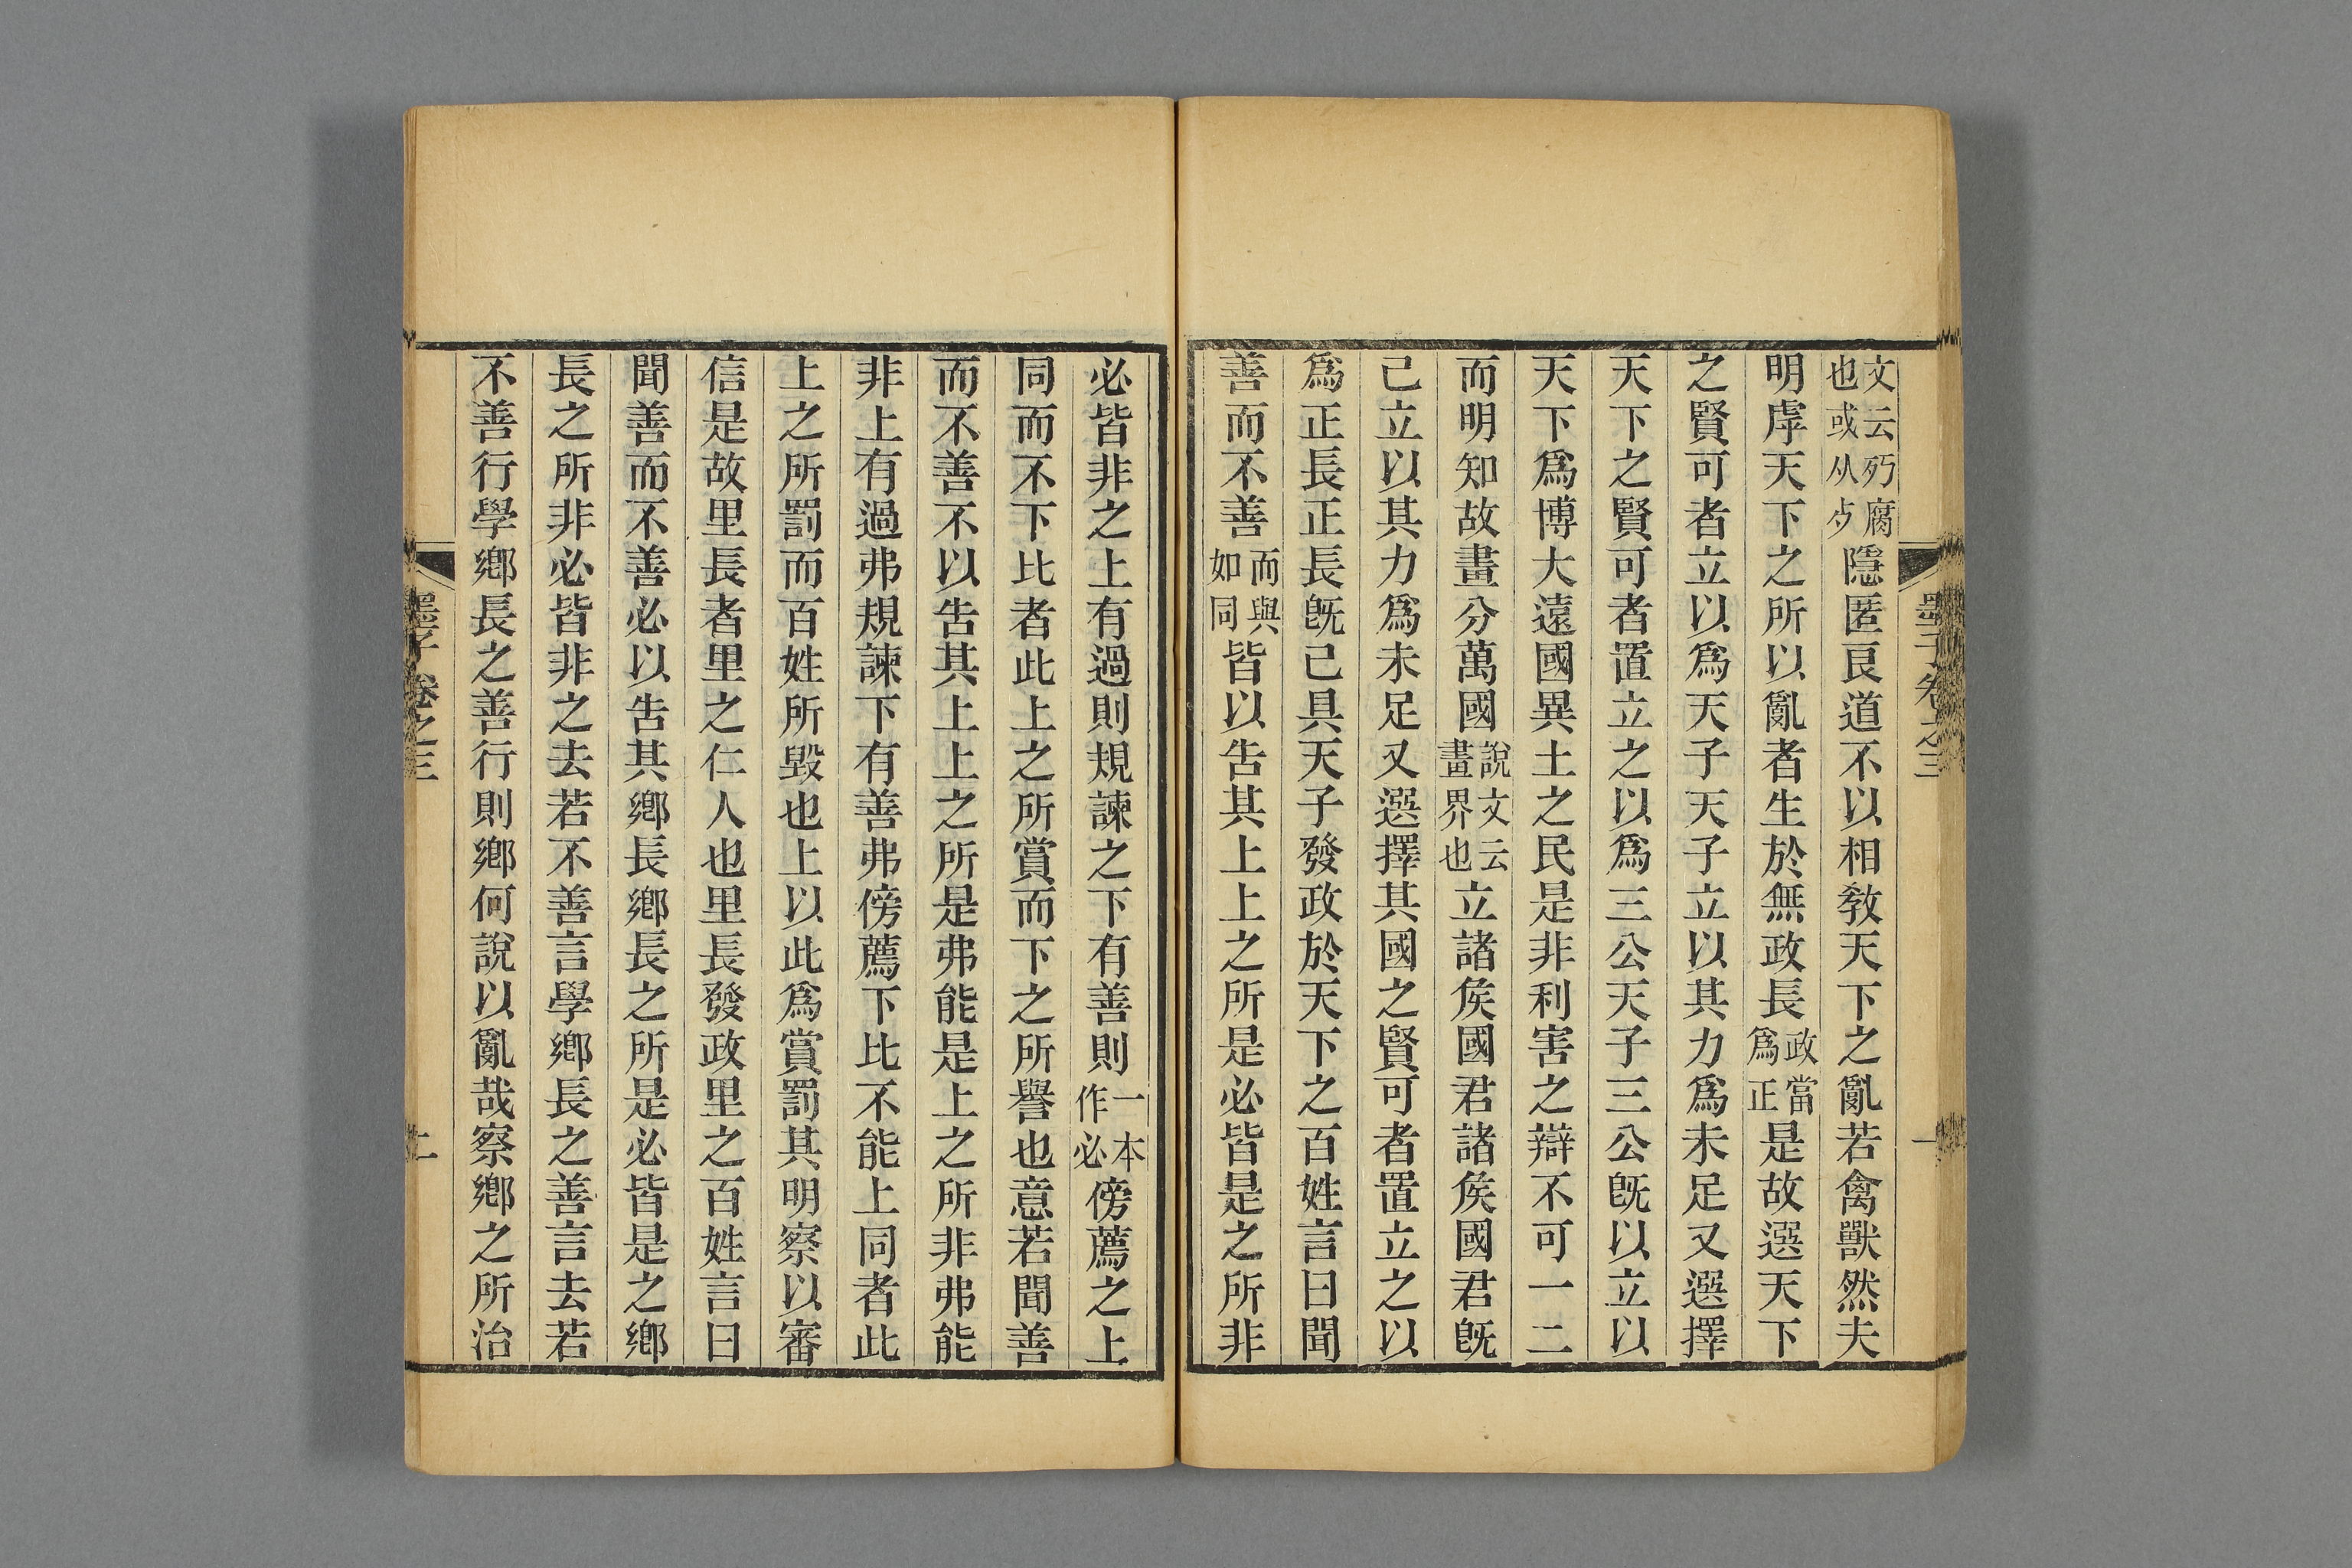 墨子卷之三 一
文云㱙腐也或从歺隱匿良道不以相敎天下之亂若禽獸然夫
明虖天下之所以亂者生於無政長政當爲正是故選天下
之賢可者立以爲天子天子立以其力爲未足又選擇
天下之賢可者置立之以爲三公天子三公旣以立以
天下爲博大遠國異土之民是非利害之辯不可一二
而明知故畫分萬國說文云畫界也立諸矦國君諸矦國君旣
已立以其力爲未足又選擇其國之賢可者置立之以
爲正長正長旣已具天子發政於天下之百姓言曰聞
善而不善而與如同皆以吿其上上之所是必皆是之所非
必皆非之上有過則規諫之下有善則一本作必傍薦之上
同而不下比者此上之所賞而下之所譽也意若聞善
而不善不以吿其上上之所是弗能是上之所非弗能
非上有過弗規諫下有善弗傍薦下比不能上同者此
上之所罰而百姓所毀也上以此爲賞罰其明察以審
信是故里長者里之仁人也里長發政里之百姓言曰
聞善而不善必以吿其鄕長鄕長之所是必皆是之鄕
長之所非必皆非之去若不善言學鄕長之善言去若
不善行學鄕長之善行則鄕何說以亂哉察鄕之所治
墨子卷之三 二